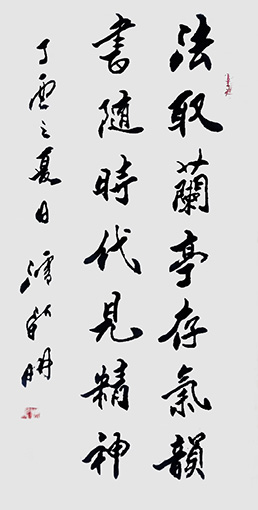 法取蘭亭存氣韻
書隨時代見精神
丁酉之夏日